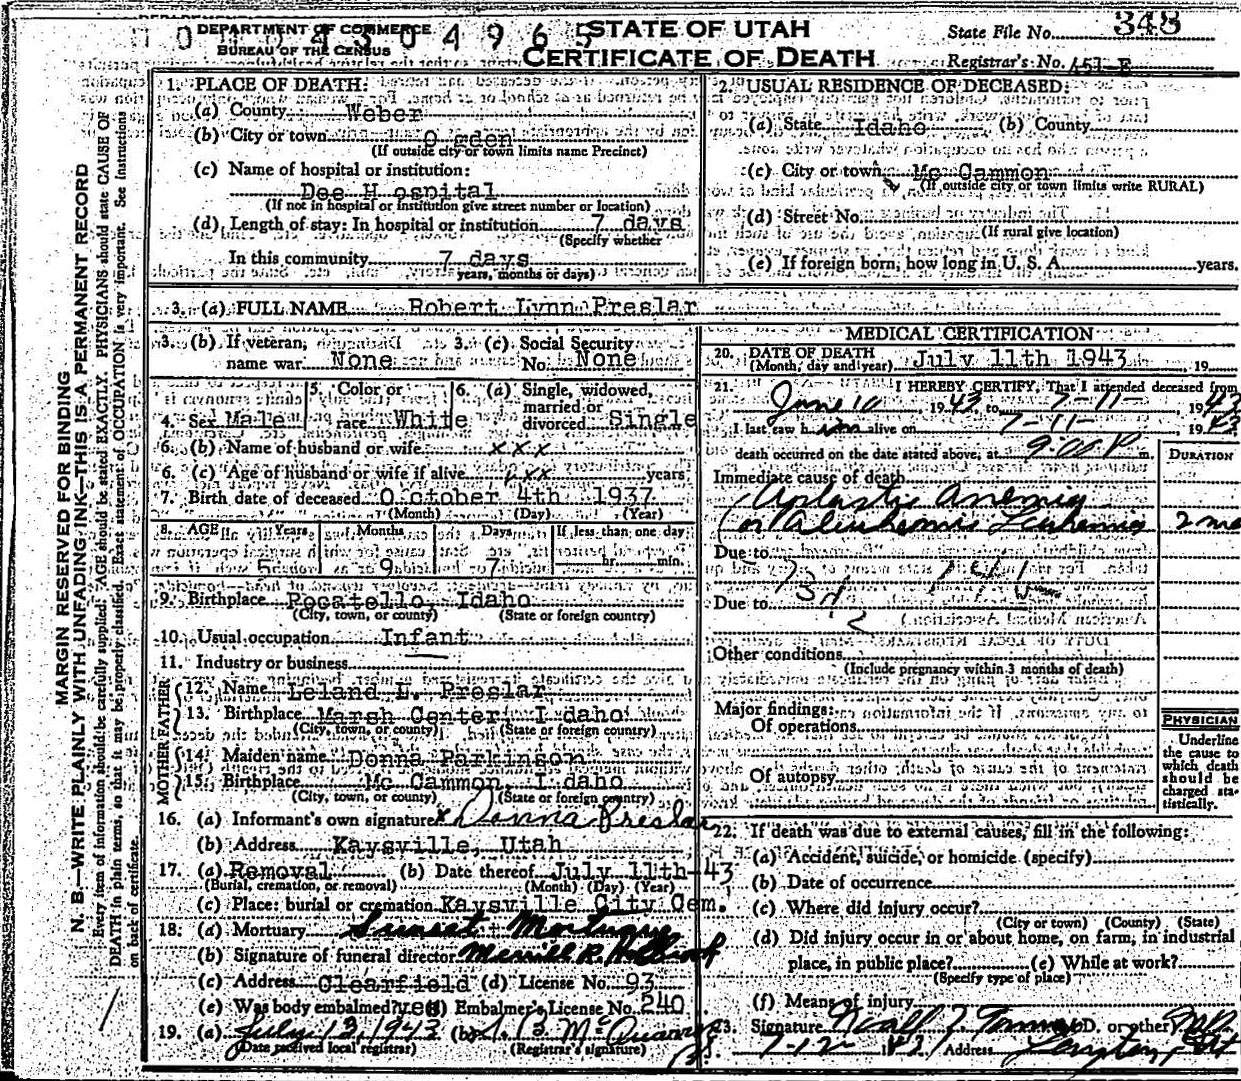 DEPARTMENT OF COMMERCE
BUREAU OF THE CENSUS
0 4 9 6 5
STATE OF UTAH
CERTIFICATE OF DEATH
State File No. 348
Registrar's No. 451-E
MARGIN RESERVED FOR BINDING
N. B.—WRITE PLAINLY WITH UNFADING INK—THIS IS A PERMANENT RECORD
Every item of information should be carefully supplied. AGE should be stated EXACTLY. PHYSICIANS should state CAUSE OF
DEATH in plain terms, so that it may be properly classified. Exact statement of OCCUPATION is very important. See Instructions
on back of certificate.
1. PLACE OF DEATH:
(a) County Weber
(b) City or town O gden
(If outside city or town limits name Precinct)
(c) Name of hospital or institution:
Dee H ospital
(If not in hospital or institution give street number or location)
(d) Length of stay: In hospital or institution 7 days
(Specify whether
In this community 7 days
years, months or days)
2. USUAL RESIDENCE OF DECEASED:
(a) State Idaho (b) County
(c) City or town Mc Cammon
(If outside city or town limits write RURAL)
(d) Street No.
(If rural give location)
(e) If foreign born, how long in U. S. A. years.
3. (a) FULL NAME Robert Lynn Preslar
3. (b) If veteran, name war None
3. (c) Social Security No. None
4. Sex Male
5. Color or race White
6. (a) Single, widowed, married or divorced Single
6. (b) Name of husband or wife xxx
6. (c) Age of husband or wife if alive xxx years
7. Birth date of deceased O ctober 4th 1937
(Month) (Day) (Year)
8. AGE Years Months Days If less than one day
5 9 7 hr. min.
9. Birthplace Pocatello, Idaho
(City, town, or county) (State or foreign country)
10. Usual occupation Infant
11. Industry or business
FATHER
12. Name Leland L. Preslar
13. Birthplace Marsh Center, I daho
(City, town, or county) (State or foreign country)
MOTHER
14. Maiden name Donna Parkinson
15. Birthplace Mc Cammon, I daho
(City, town, or county) (State or foreign country)
16. (a) Informant's own signature x Donna Preslar
(b) Address Kaysville, Utah
17. (a) Removal (b) Date thereof July 11th-43
(Burial, cremation, or removal) (Month) (Day) (Year)
(c) Place: burial or cremation Kaysville City Cem.
18. (a) Mortuary Sunset Mortuary
(b) Signature of funeral director Merrill R. Holbrook
(c) Address Clearfield (d) License No. 93
(e) Was body embalmed? yes (f) Embalmer's License No. 240
19. (a) July 13, 1943 (b)
(Date received local registrar) (Registrar's signature)
MEDICAL CERTIFICATION
20. DATE OF DEATH July 11th 1943 19
(Month, day and year)
21. I HEREBY CERTIFY, That I attended deceased from
June 10 1943, to 7-11- 1943
I last saw him alive on 7-11- 1943
death occurred on the date stated above, at 9:00 P m.
DURATION
Immediate cause of death
Aplastic Anemia
or Aleukemic Leukemia 2 mo
Due to
Due to
Other conditions
(Include pregnancy within 3 months of death)
Major findings:
Of operations
Of autopsy
PHYSICIAN
Underline
the cause to
which death
should be
charged sta-
tistically.
22. If death was due to external causes, fill in the following:
(a) Accident, suicide, or homicide (specify)
(b) Date of occurrence
(c) Where did injury occur?
(City or town) (County) (State)
(d) Did injury occur in or about home, on farm, in industrial
place, in public place? (e) While at work?
(Specify type of place)
(f) Means of injury
23. Signature Noall Z. Tanner (M.D. or other) M.D.
7-12- 1943 Address Layton, Ut